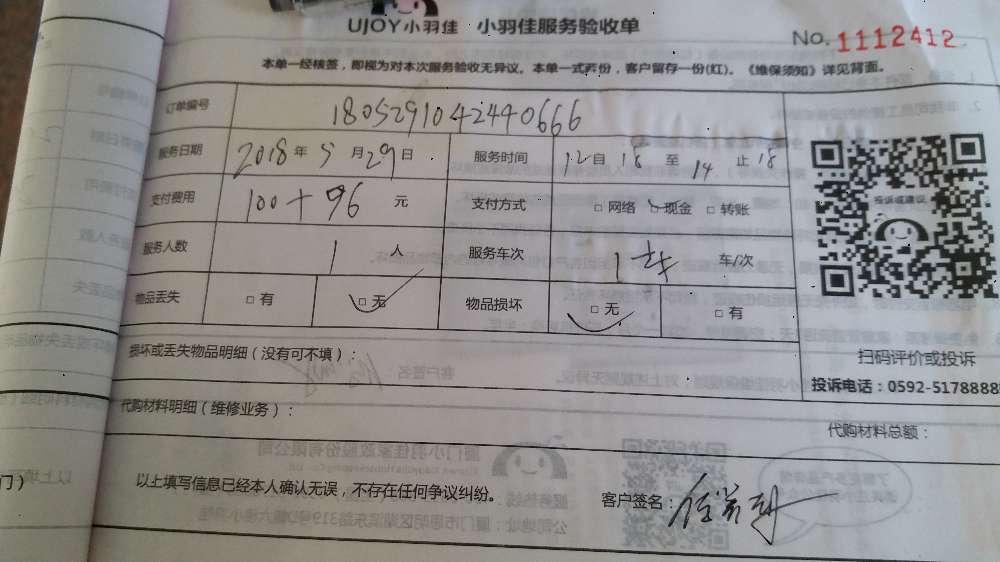 UJOY小羽佳 小羽佳服务验收单
No. 1112412
本单一经核签，即视为对本次服务验收无异议。本单一式两份，客户留存一份(红)。《维保须知》详见背面。
订单编号 18052910424440666
服务日期 2018年5月29日 服务时间 12自18至14止18
支付费用 100+96 元 支付方式 □网络 □现金 □转账
服务人数 1 人 服务车次 1 车/次
物品丢失 □有 □无 物品损坏 □无 □有
投诉或建议
扫码评价或投诉
损坏或丢失物品明细（没有可不填）：
投诉电话：0592-5178888
代购材料明细（维修业务）：
代购材料总额：
以上填写信息已经本人确认无误，不存在任何争议纠纷。
客户签名：
门）